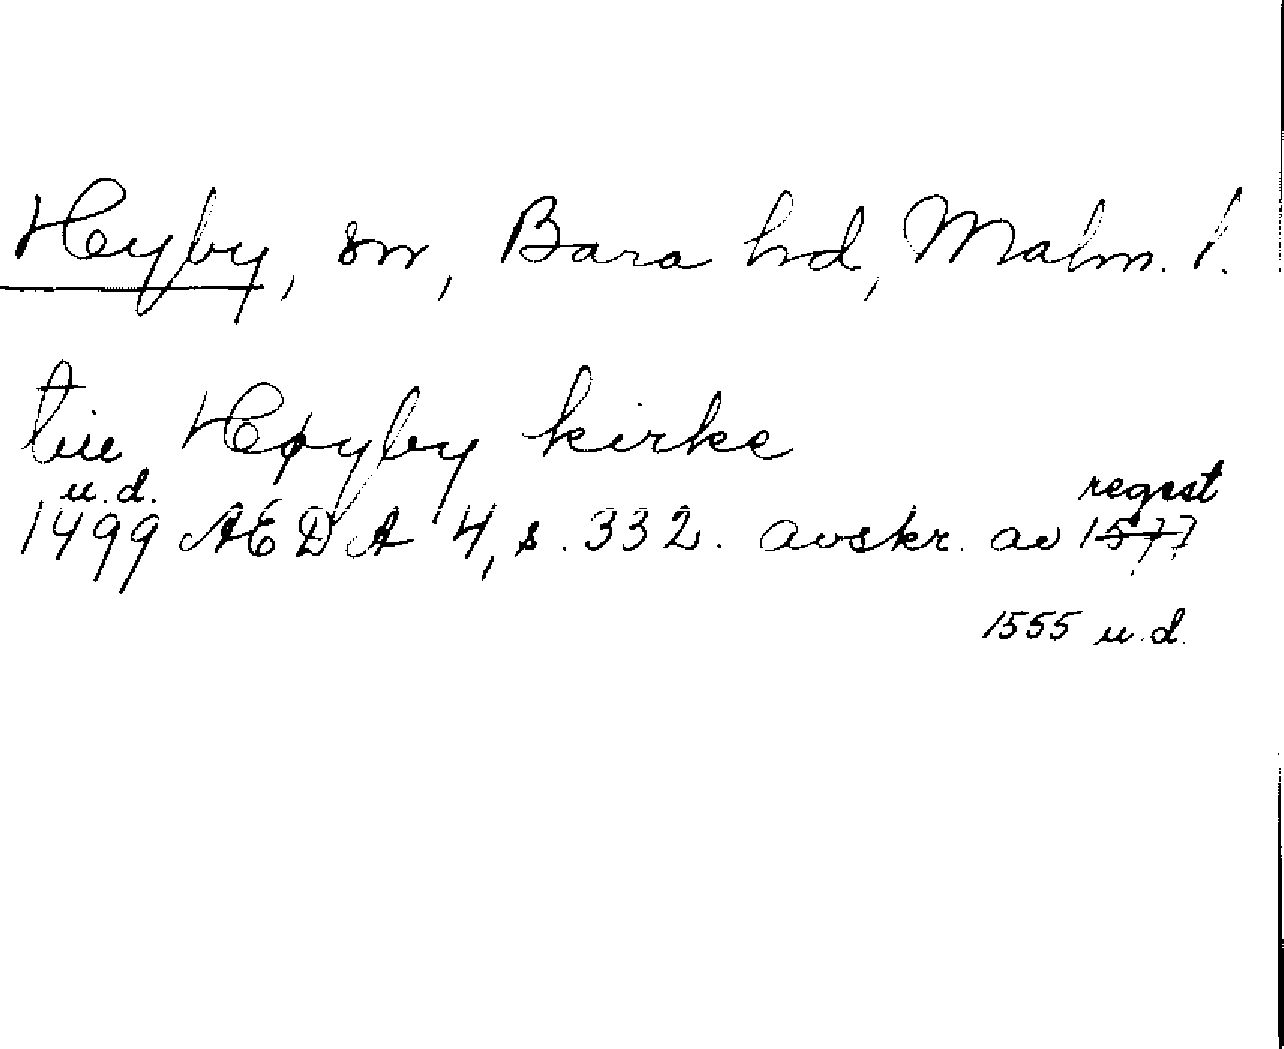 Hyby, sn, Bara hd, Malm. l.
tiu Høyby kirke
u.d. regest
1499 AEDA 4, s. 332. avskr. av 1577
1555 u.d.